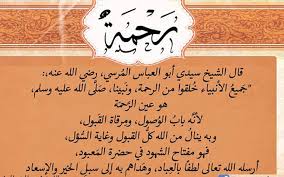 رَحْمَةٌ
قال الشيخ سيدي أبو العباس المُرسي، رضي الله عنه،:
"جَميعُ الأنبياء خُلقوا من الرحمة، ونَبِينا، صَلَّى الله عليه وسلم،
هو عَين الرَحمَة
لأنَّه بابُ الوُصولِ، ومِرقاة القَبول،
وبه ينالُ من الله كلّ القَبول وغَاية السُّؤل،
فهو مفتاح الشهود في حضرة المَعبود،
أرسله الله تعالى لطفًا بالعِباد، وهَداهم به إلى سبل الخَيْر والإسعاد